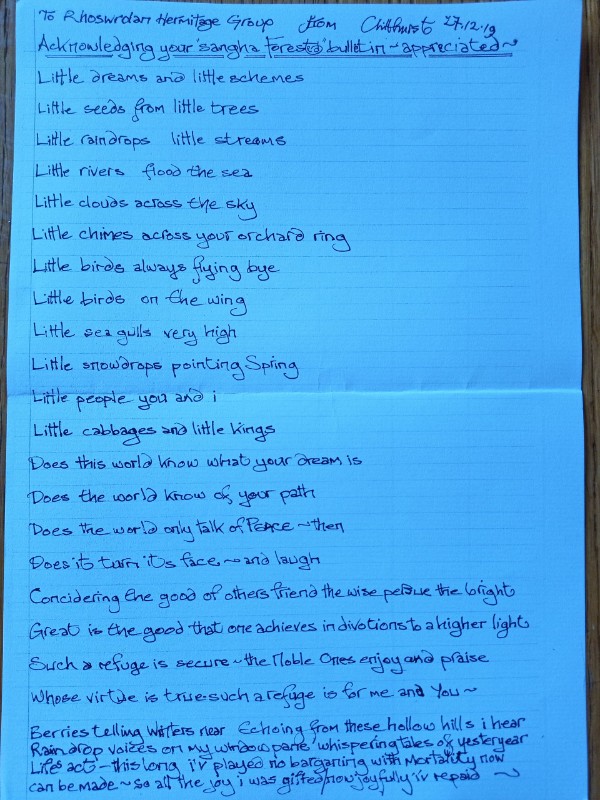 To Rhoswrdan Hermitage Group from Chithurst 27.12.19
Acknowledging your "sangha forested" bulletin ~ appreciated ~
Little dreams and little schemes
Little seeds from little trees
Little raindrops little streams
Little rivers flood the sea
Little clouds across the sky
Little chimes across your orchard ring
Little birds always flying bye
Little birds on the wing
Little sea gulls very high
Little snowdrops pointing Spring
Little people you and i
Little cabbages and little kings
Does this world know what your dream is
Does the world know of your path
Does the world only talk of PEACE ~ then
Does it turn its face ~ and laugh
Concidering the good of others friend the wise persue the bright
Great is the good that one achieves in divotions to a higher light
Such a refuge is secure ~ the Noble Ones enjoy and praise
Whose virtue is true - such a refuge is for me and You ~
Berries telling Winters near Echoing from these hollow hills i hear
Raindrop voices on my window pane whispering tales of yesteryear
Lifes act - this long i'v played no barganing with Mortality now
can be made ~ so all the joy i was gifted now joyfully i'v repaid ~